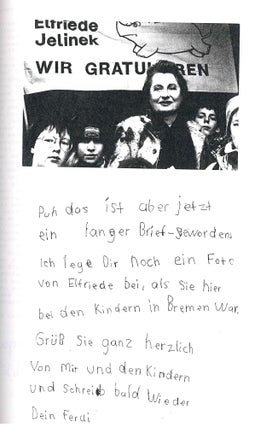 Elfriede
Jelinek
WIR GRATULIEREN
Puh das ist aber jetzt
ein langer Brief geworden.
Ich lege Dir noch ein Foto
von Elfriede bei, als sie hier
bei den Kindern in Bremen war.
Grüß Sie ganz herzlich
Von mir und den Kindern
und schreib bald wieder
Dein Ferdi